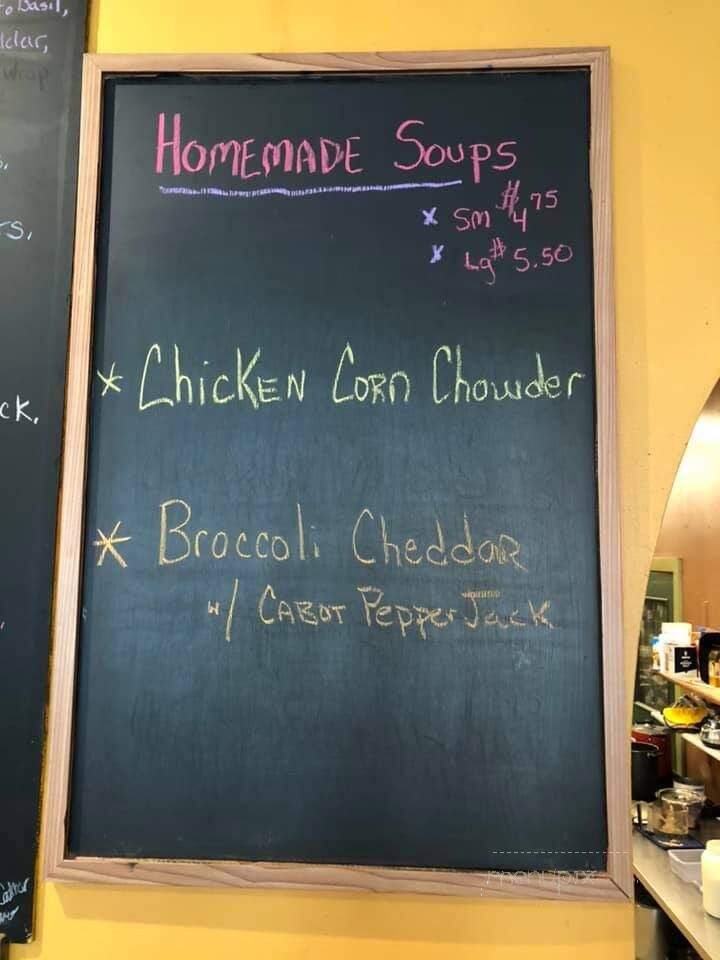 Homemade Soups
x Sm $4.75
x Lg $5.50
* Chicken Corn Chowder
* Broccoli Cheddar
w/ Cabot Pepper Jack
to Basil,
ddar,
Wrap
s,
ck.
menupix